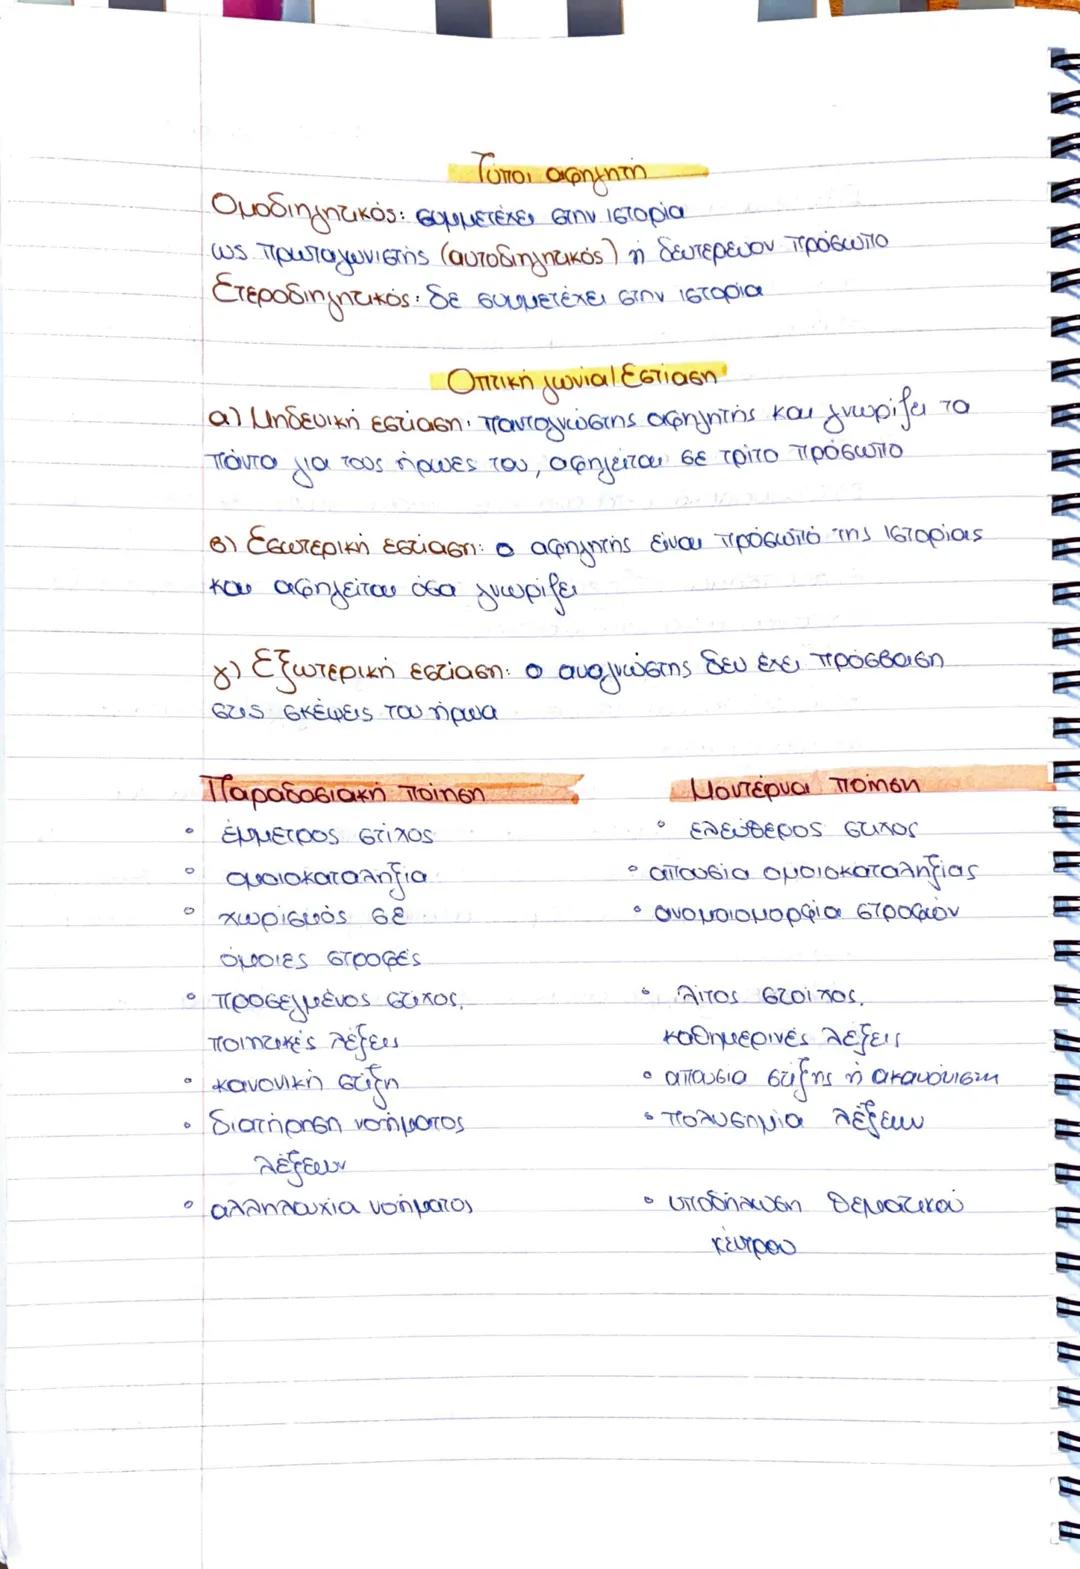 Τύποι αφηγητή
Ομοδιηγητικός: συμμετέχει στην ιστορία
ως πρωταγωνιστής (αυτοδιηγητικός) ή δευτερεύον πρόσωπο
Ετεροδιηγητικός: δε συμμετέχει στην ιστορία
Οπτική γωνία/Εστίαση
α) Μηδενική εστίαση: παντογνώστης αφηγητής και γνωρίζει τα
πάντα για τους ήρωες του, αφηγείται σε τρίτο πρόσωπο
β) Εσωτερική εστίαση: ο αφηγητής είναι πρόσωπο της ιστορίας
και αφηγείται όσα γνωρίζει
γ) Εξωτερική εστίαση: ο αναγνώστης δεν έχει πρόσβαση
στις σκέψεις του ήρωα
Παραδοσιακή ποίηση
• έμμετρος στίχος
• ομοιοκαταληξία
• χωρισμός σε
όμοιες στροφές
• προσεγμένος στίχος,
ποιητικές λέξεις
• κανονική στίξη
• διατήρηση νοήματος
λέξεων
• αλληλουχία νοήματος
Μοντέρνα ποίηση
• ελεύθερος στίχος
• απουσία ομοιοκαταληξίας
• ανομοιομορφία στροφών
• λιτος στοίχος,
καθημερινές λέξεις
• απουσια στίξης ή ακανόνιστη
• πολυσημία λέξεων
• υποδήλωση θεματικού
κέντρου